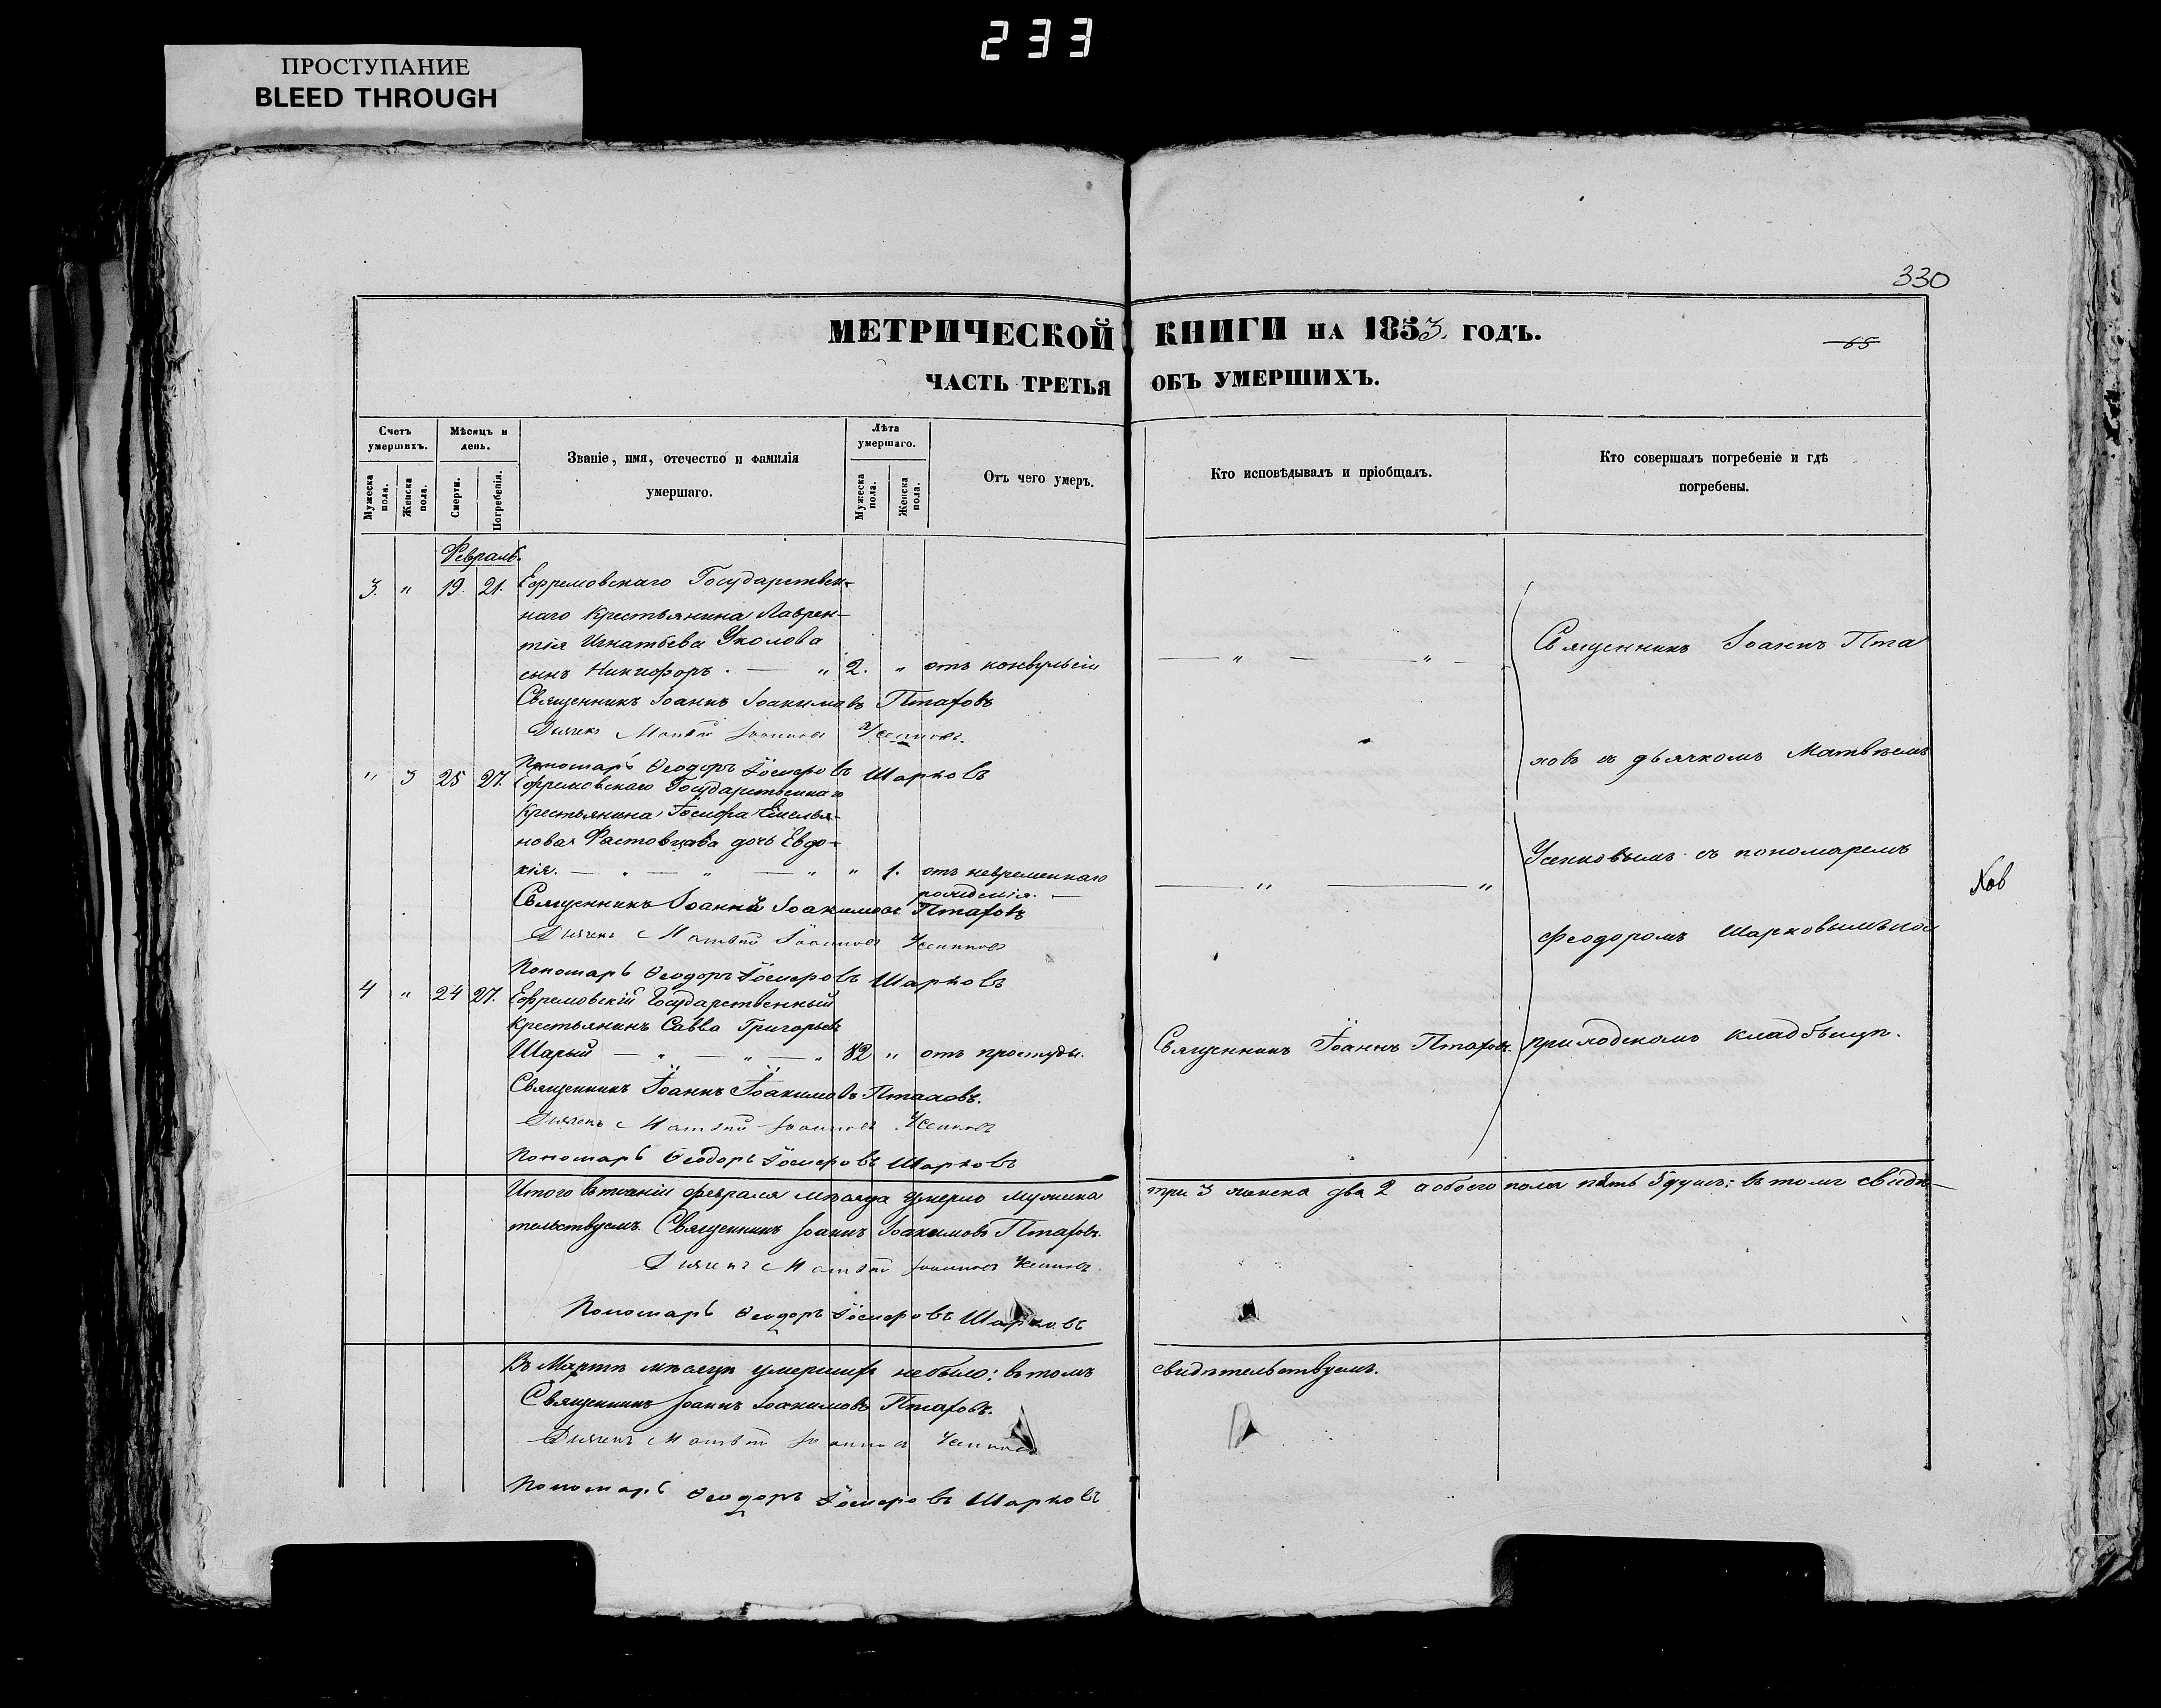 233
ПРОСТУПАНИЕ
BLEED THROUGH
330
МЕТРИЧЕСКОЙ КНИГИ НА 1853. ГОДЪ.
65
ЧАСТЬ ТРЕТЬЯ ОБЪ УМЕРШИХЪ.
Счетъ умершихъ.
Мѣсяцъ и день.
Званіе, имя, отечество и фамилія умершаго.
Лѣта умершаго.
Отъ чего умеръ.
Кто исповѣдывалъ и пріобщалъ.
Кто совершалъ погребеніе и гдѣ погребены.
Мужеска пола.
Женска пола.
Смерти.
Погребенія.
Мужеска пола.
Женска пола.
Февраль.
3. " 19. 21. Ефремовскаго Государствен-
наго Крестьянина Лаврен-
тія Игнатьева Уколова
сынъ Никифоръ. — " 2. " отъ конвульсіи — " — " —
Священникъ Іоаннъ Іоакимовъ Птаховъ
Дьячекъ Матвѣй Іоанновъ Усенковъ.
Пономарь Ѳеодоръ Іосифовъ Шарковъ
" 3 25 27. Ефремовскаго Государственнаго
Крестьянина Іосифа Емелья-
нова Растовцова дочь Евдо-
кія. — " — " — " " 1. отъ невременнаго
рожденія. — — " — "
Священникъ Іоаннъ Іоакимовъ Птаховъ
Дьячекъ Матвѣй Іоанновъ Усенковъ
Пономарь Ѳеодоръ Іосифовъ Шарковъ
4 " 24 27. Ефремовскій Государственный
Крестьянинъ Савва Григорьевъ
Шарый — " — " — " 82 " отъ простуды. Священникъ Іоаннъ Птаховъ.
Священникъ Іоаннъ Іоакимовъ Птаховъ.
Дьячекъ Матвѣй Іоанновъ Усенковъ
Пономарь Ѳеодоръ Іосифовъ Шарковъ
Священникъ Іоаннъ Пта
ховъ съ дьячкомъ Матвѣемъ
Усенковымъ съ пономаремъ
Феодоромъ Шарковымъ на
приходскомъ кладбищѣ.
Итого въ февраля мѣсяца умерло мужеска три 3 женска два 2 а обоего пола пять 5 душъ: въ томъ свидѣ-
тельствуемъ. Священникъ Іоаннъ Іоакимовъ Птаховъ.
Дьячекъ Матвѣй Іоанновъ Усенковъ.
Пономарь Ѳеодоръ Іосифовъ Шарковъ
Въ Мартѣ мѣсяцѣ умершихъ небыло: въ томъ свидѣтельствуемъ.
Священникъ Іоаннъ Іоакимовъ Птаховъ.
Дьячекъ Матвѣй Іоанновъ Усенковъ
Пономарь Ѳеодоръ Іосифовъ Шарковъ